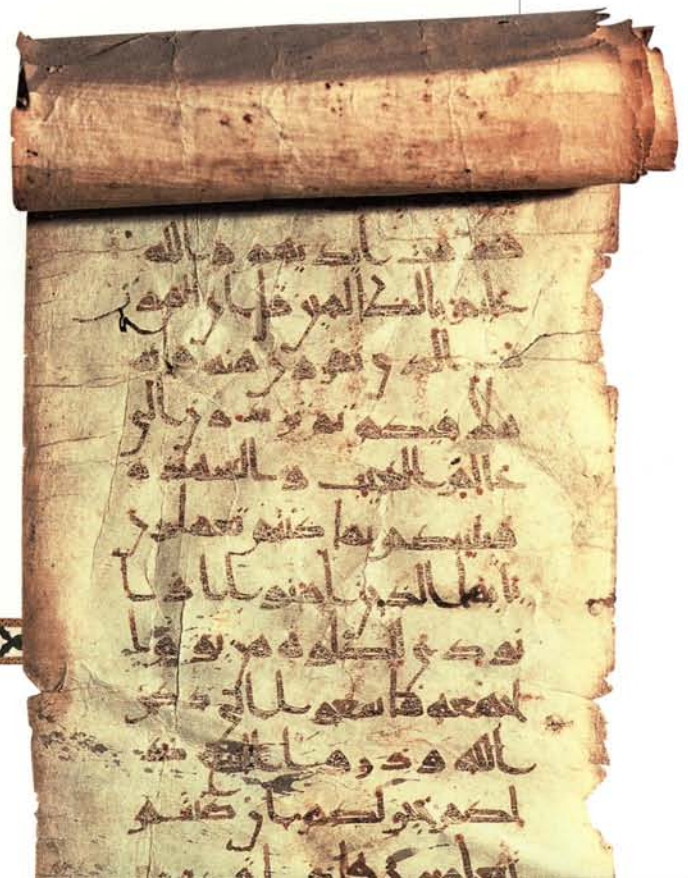 قدمت ايديهم والله
عليم بالظلمين قل ان الموت
الذي تفرون منه فانه
ملقيكم ثم تردون الى
علم الغيب والشهدة
فينبئكم بما كنتم تعملون
يايها الذين امنوا اذا
نودي للصلوة من يوم ا
لجمعة فاسعوا الى ذكر
الله وذروا البيع ذ
لكم خير لكم ان كنتم
تعلمون فاذا